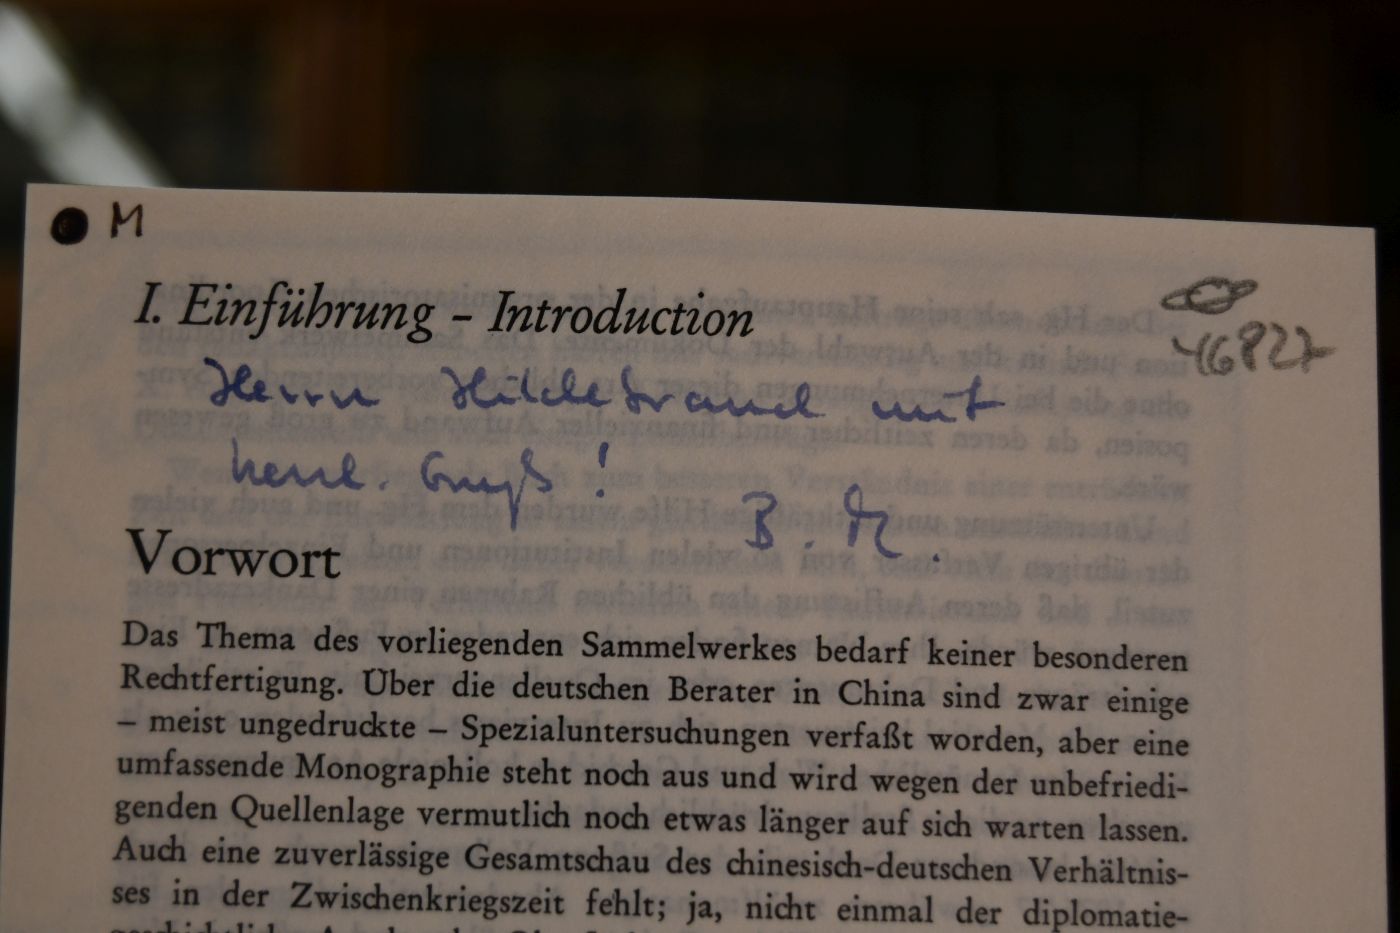 M
I. Einführung – Introduction
46827
Herrn Hildebrand mit
herzl. Gruß!
B. M.
Vorwort
Das Thema des vorliegenden Sammelwerkes bedarf keiner besonderen
Rechtfertigung. Über die deutschen Berater in China sind zwar einige
– meist ungedruckte – Spezialuntersuchungen verfaßt worden, aber eine
umfassende Monographie steht noch aus und wird wegen der unbefriedi-
genden Quellenlage vermutlich noch etwas länger auf sich warten lassen.
Auch eine zuverlässige Gesamtschau des chinesisch-deutschen Verhältnis-
ses in der Zwischenkriegszeit fehlt; ja, nicht einmal der diplomatie-